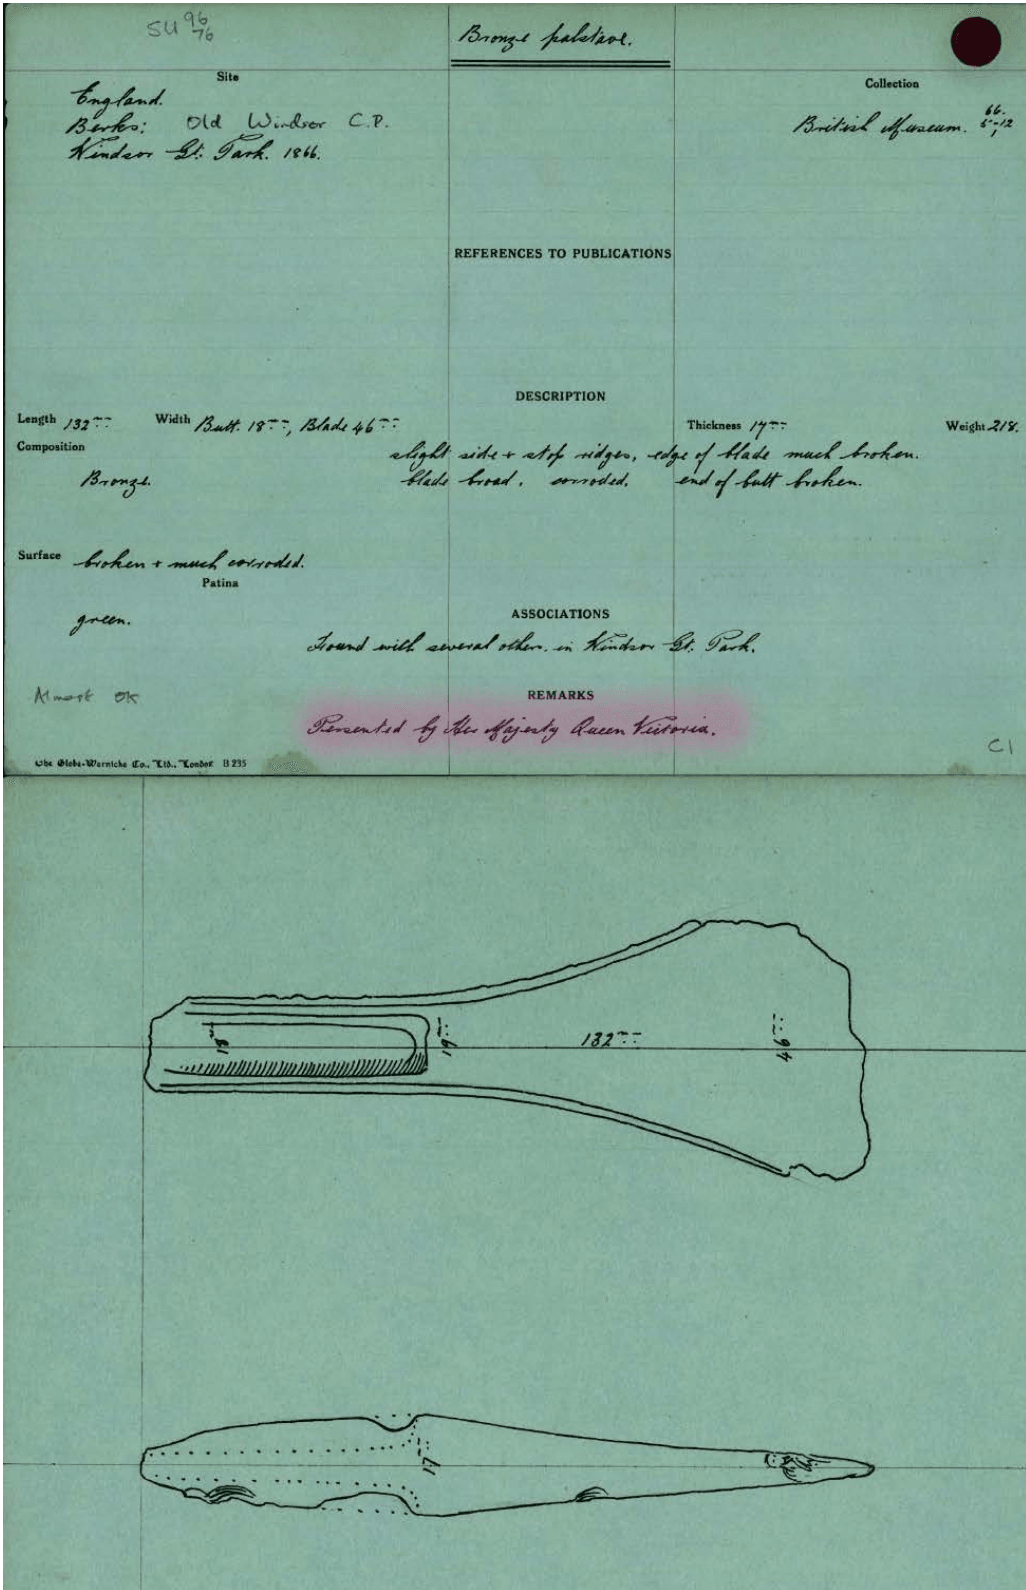 SU 96
76
Bronze palstave.
Site
England.
Berks: Old Windsor C.P.
Windsor Gt: Park. 1866.
Collection
British Museum. 66.
5-12
REFERENCES TO PUBLICATIONS
DESCRIPTION
Length 132mm Width Butt. 18mm, Blade 46mm Thickness 17mm Weight 218.
Composition
Bronze.
slight side + stop ridges, edge of blade much broken.
blade broad. corroded. end of butt broken.
Surface broken + much corroded.
Patina
green.
ASSOCIATIONS
Found with several others. in Windsor Gt: Park.
Almost OK
REMARKS
Presented by Her Majesty Queen Victoria.
C1
The Globe-Wernicke Co., Ltd., London B 235
18mm
19mm
132mm
46mm
17mm